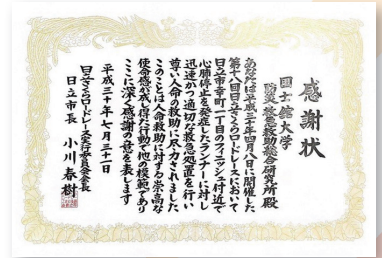 感謝状
国士舘大学
防災・救急救助総合研究所殿
あなたは平成三十年四月八日に開催した
第十八回日立さくらロードレースにおいて
日立市幸町一丁目のフィニッシュ付近で
心肺停止を発症したランナーに対し
迅速かつ適切な救急処置を行い
尊い人命の救助に尽力されました
このことは人命救助に対する崇高な
使命感が成し得た行動で他の模範であり
ここに深く感謝の意を表します
平成三十年七月三十一日
日立さくらロードレース実行委員会会長
日立市長 小川春樹